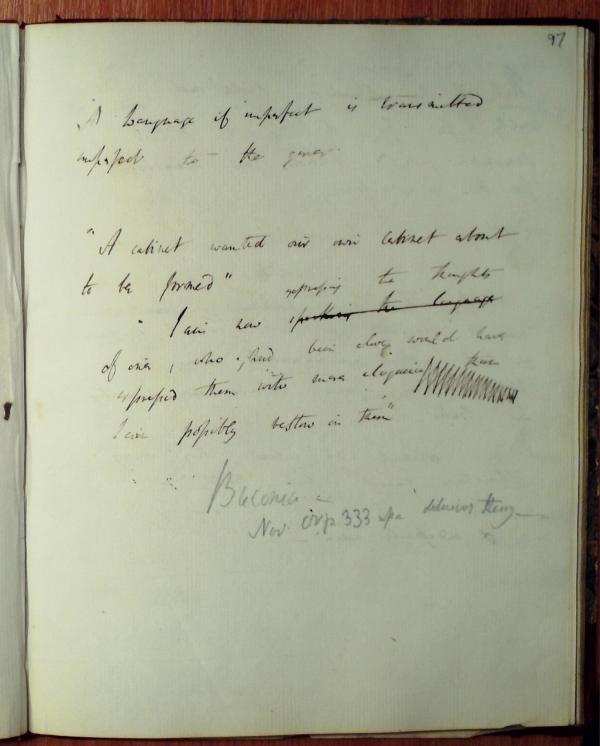 97
A Language if imperfect is transmitted
imperfect to the
"A cabinet wanted our own Cabinet about
to be formed"
expressing the thoughts
"I am now speaking the language
of one, who had been alive would have
expressed them with more eloquence than
I can possibly bestow on them"
Baconia —
Nov. Org. 333